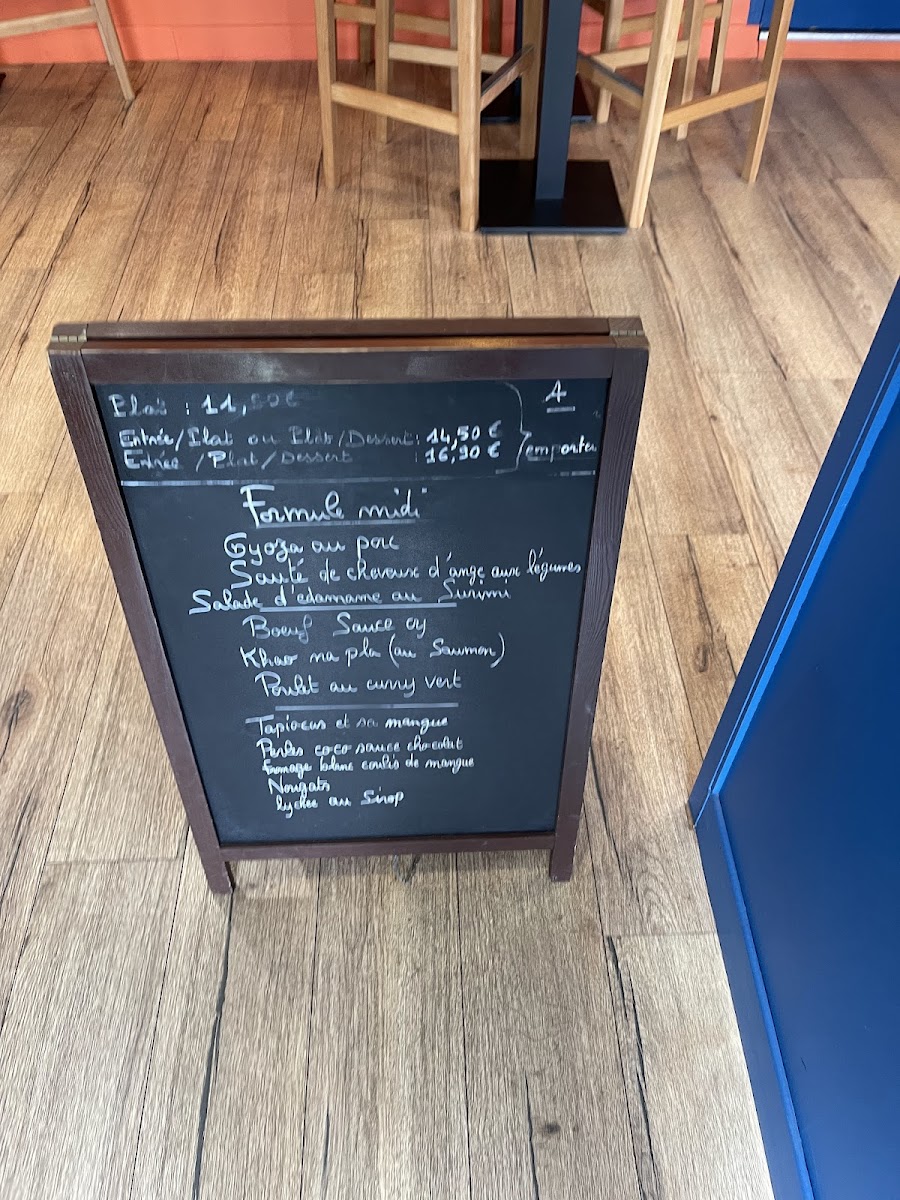 Plat : 11,50€
Entrée/Plat ou Plat/Dessert : 14,50 €
Entrée /Plat/Dessert : 16,90 €
A
emporter
Formule midi
Gyoza au porc
Sauté de cheveux d'ange aux légumes
Salade d'edamame au Surimi
Boeuf Sauce oy
Khao na pla (au Saumon)
Poulet au curry vert
Tapiocas et sa mangue
Perles coco sauce chocolat
Fromage blanc coulis de mangue
Nougats
lychee au Sirop